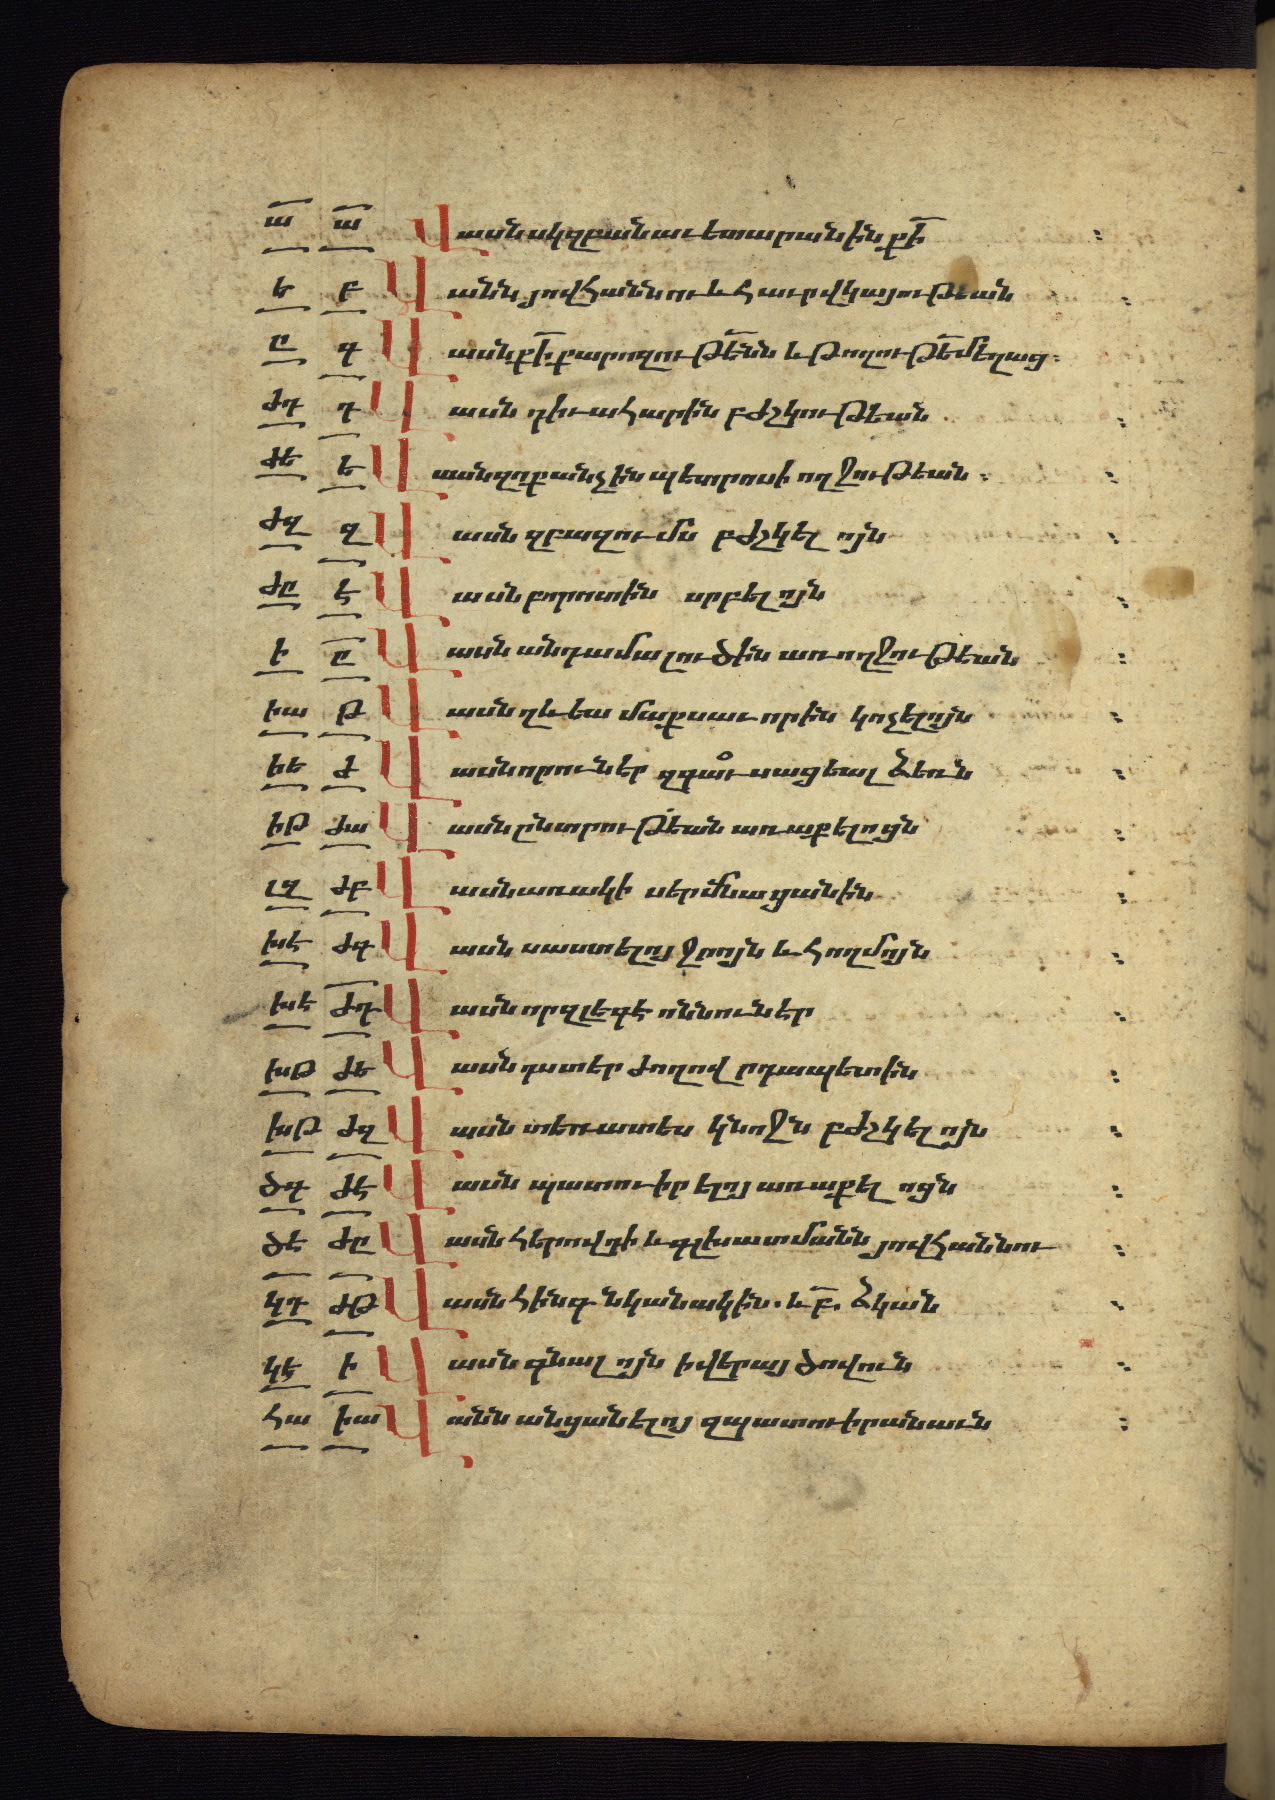 ա ա Վասն սկզբան աւետարանին քի
ե բ Վանն յովհաննու և հաւր վկայութեան
ը գ Վասն քի քարոզութենն և թողութե մեղաց ։
ժդ դ Վասն դիւահարին բժշկութեան ։
ժե ե Վասն զոքանչին պետրոսի ողջութեան ։
ժզ զ Վասն զբազումս բժշկելոյն ։
ժը է Վասն բորոտին սրբելոյն ։
ի ը Վասն անդամալուծին առողջութեան ։
իա թ Վասն ղևեա մաքսաւորին կոչելոյն ։
իե ժ Վասն որ ուներ զգաւսացեալ ձեռն ։
իթ ժա Վասն ընտրութեան առաքելոցն ։
լզ ժբ Վասն առակի սերմնացանին ։
խէ ժգ Վասն սաստելոյ ջրոյն և հողմոյն ։
խէ ժդ Վասն որ զլեգէոնն ուներ ։
խթ ժե Վասն դստեր ժողովրդապետին ։
խթ ժզ Վասն տեռատես կնոջն բժշկելոյն ։
ծգ ժէ Վասն պատուիրելոյ առաքելոցն ։
ծէ ժը Վասն հերովդի և գլխատմանն յովհաննու ։
կդ ժթ Վասն հինգ նկանակին . և բ . ձկան ։
կէ ի Վասն գնալոյն ի վերայ ծովուն ։
հա իա Վանն անցանելոյ զպատուիրանաւն ։